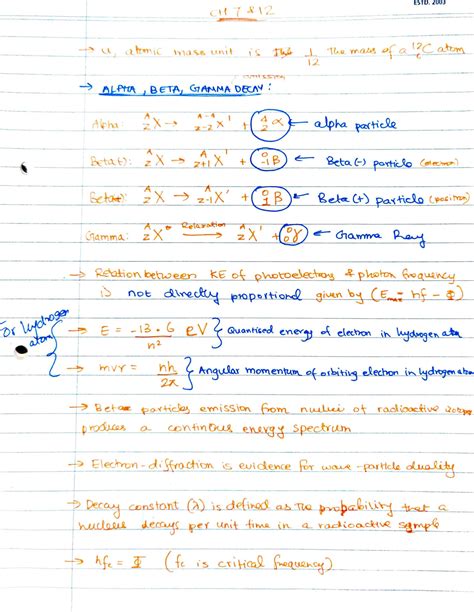 ESTD. 2003
CH 7 & 12
→ u, atomic mass unit is the 1/12 the mass of a ¹²₆C atom
→ ALPHA, BETA, GAMMA DECAY:
Alpha: ᴬzX → ᴬ⁻⁴z-2X' + ⁴₂α ← alpha particle
ᴬzX → ᴬz+1X' + ⁰-1β ← Beta(-) particle (electron)
ᴬzX → ᴬz-1X' + ⁰₁β ← Beta(+) particle (positron)
Gamma: ᴬzX* Relaxation→ ᴬzX' + ⁰₀γ ← Gamma Ray
→ Relation between KE of photoelectrons & photon frequency
is not directly proportional given by (Emax = hf - Φ)
For hydrogen atom
→ E = -13.6/n² eV } Quantised energy of electron in hydrogen atom
→ mvr = nh/2π } Angular momentum of orbiting electron in hydrogen atom
→ Beta particles emission from nuclei of radioactive
produces a continous energy spectrum
→ Electron-diffraction is evidence for wave-particle duality
→ Decay constant (λ) is defined as the probability that a
nucleus decays per unit time in a radioactive sample
→ hfc = Φ (fc is critical frequency)